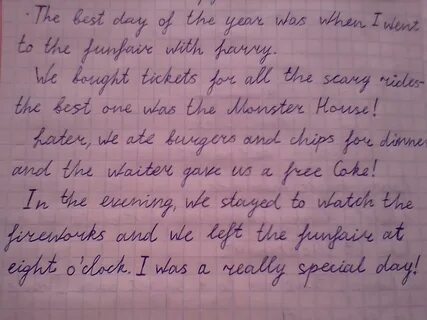 The best day of the year was when I went
to the funfair with Harry.
We bought tickets for all the scary rides-
the best one was the Monster House!
Later, we ate burgers and chips for dinner
and the waiter gave us a free Coke!
In the evening, we stayed to watch the
fireworks and we left the funfair at
eight o'clock. I was a really special day!